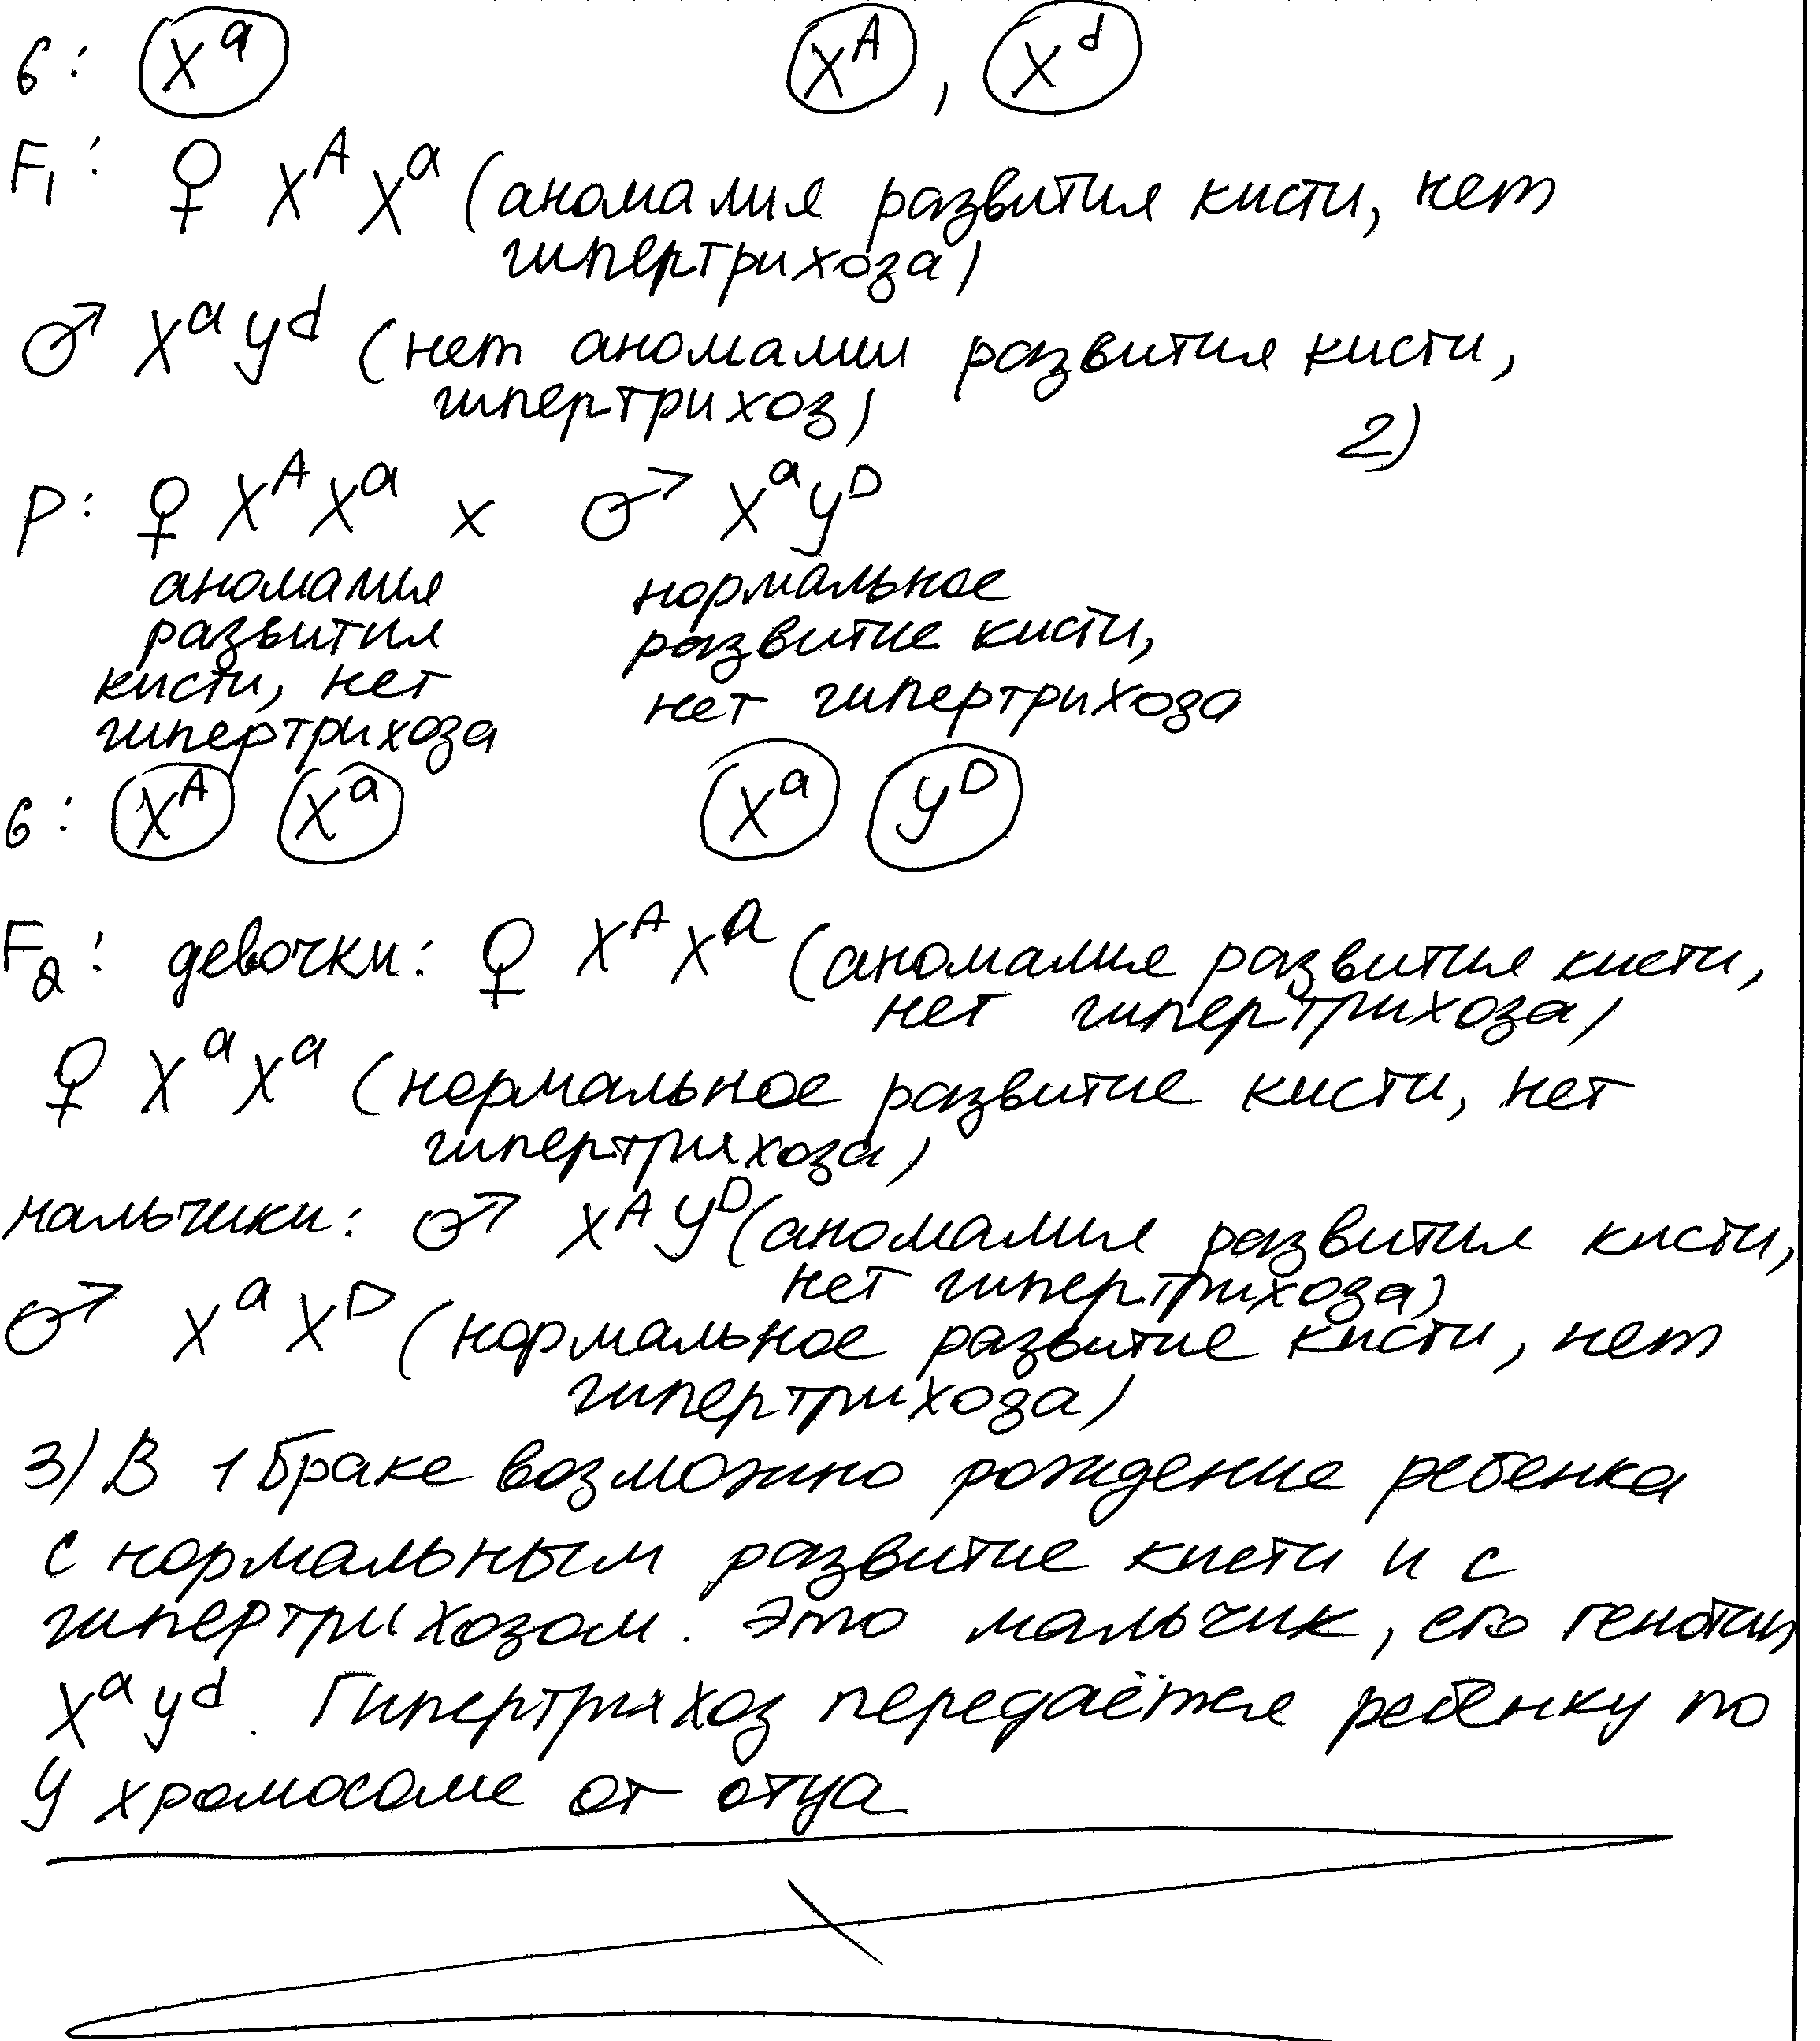 G: X^a X^A, X^d
F₁: ♀ X^A X^a (аномалия развития кисти, нет
гипертрихоза)
♂ X^a y^d (нет аномалии развития кисти,
гипертрихоз)
2)
P: ♀ X^A X^a x ♂ X^a y^D
аномалия
развития
кисти, нет
гипертрихоза
нормальное
развитие кисти,
нет гипертрихоза
G: X^A X^a X^a y^D
F₂: девочки: ♀ X^A X^a (аномалия развития кисти,
нет гипертрихоза)
♀ X^a X^a (нормальное развитие кисти, нет
гипертрихоза)
мальчики: ♂ X^A y^D (аномалия развития кисти,
нет гипертрихоза)
♂ X^a X^D (нормальное развитие кисти, нет
гипертрихоза)
3) В 1 браке возможно рождение ребенка
с нормальным развитие кисти и с
гипертрихозом. Это мальчик, его генотип
X^a y^d. Гипертрихоз передаётся ребенку по
У хромосоме от отца